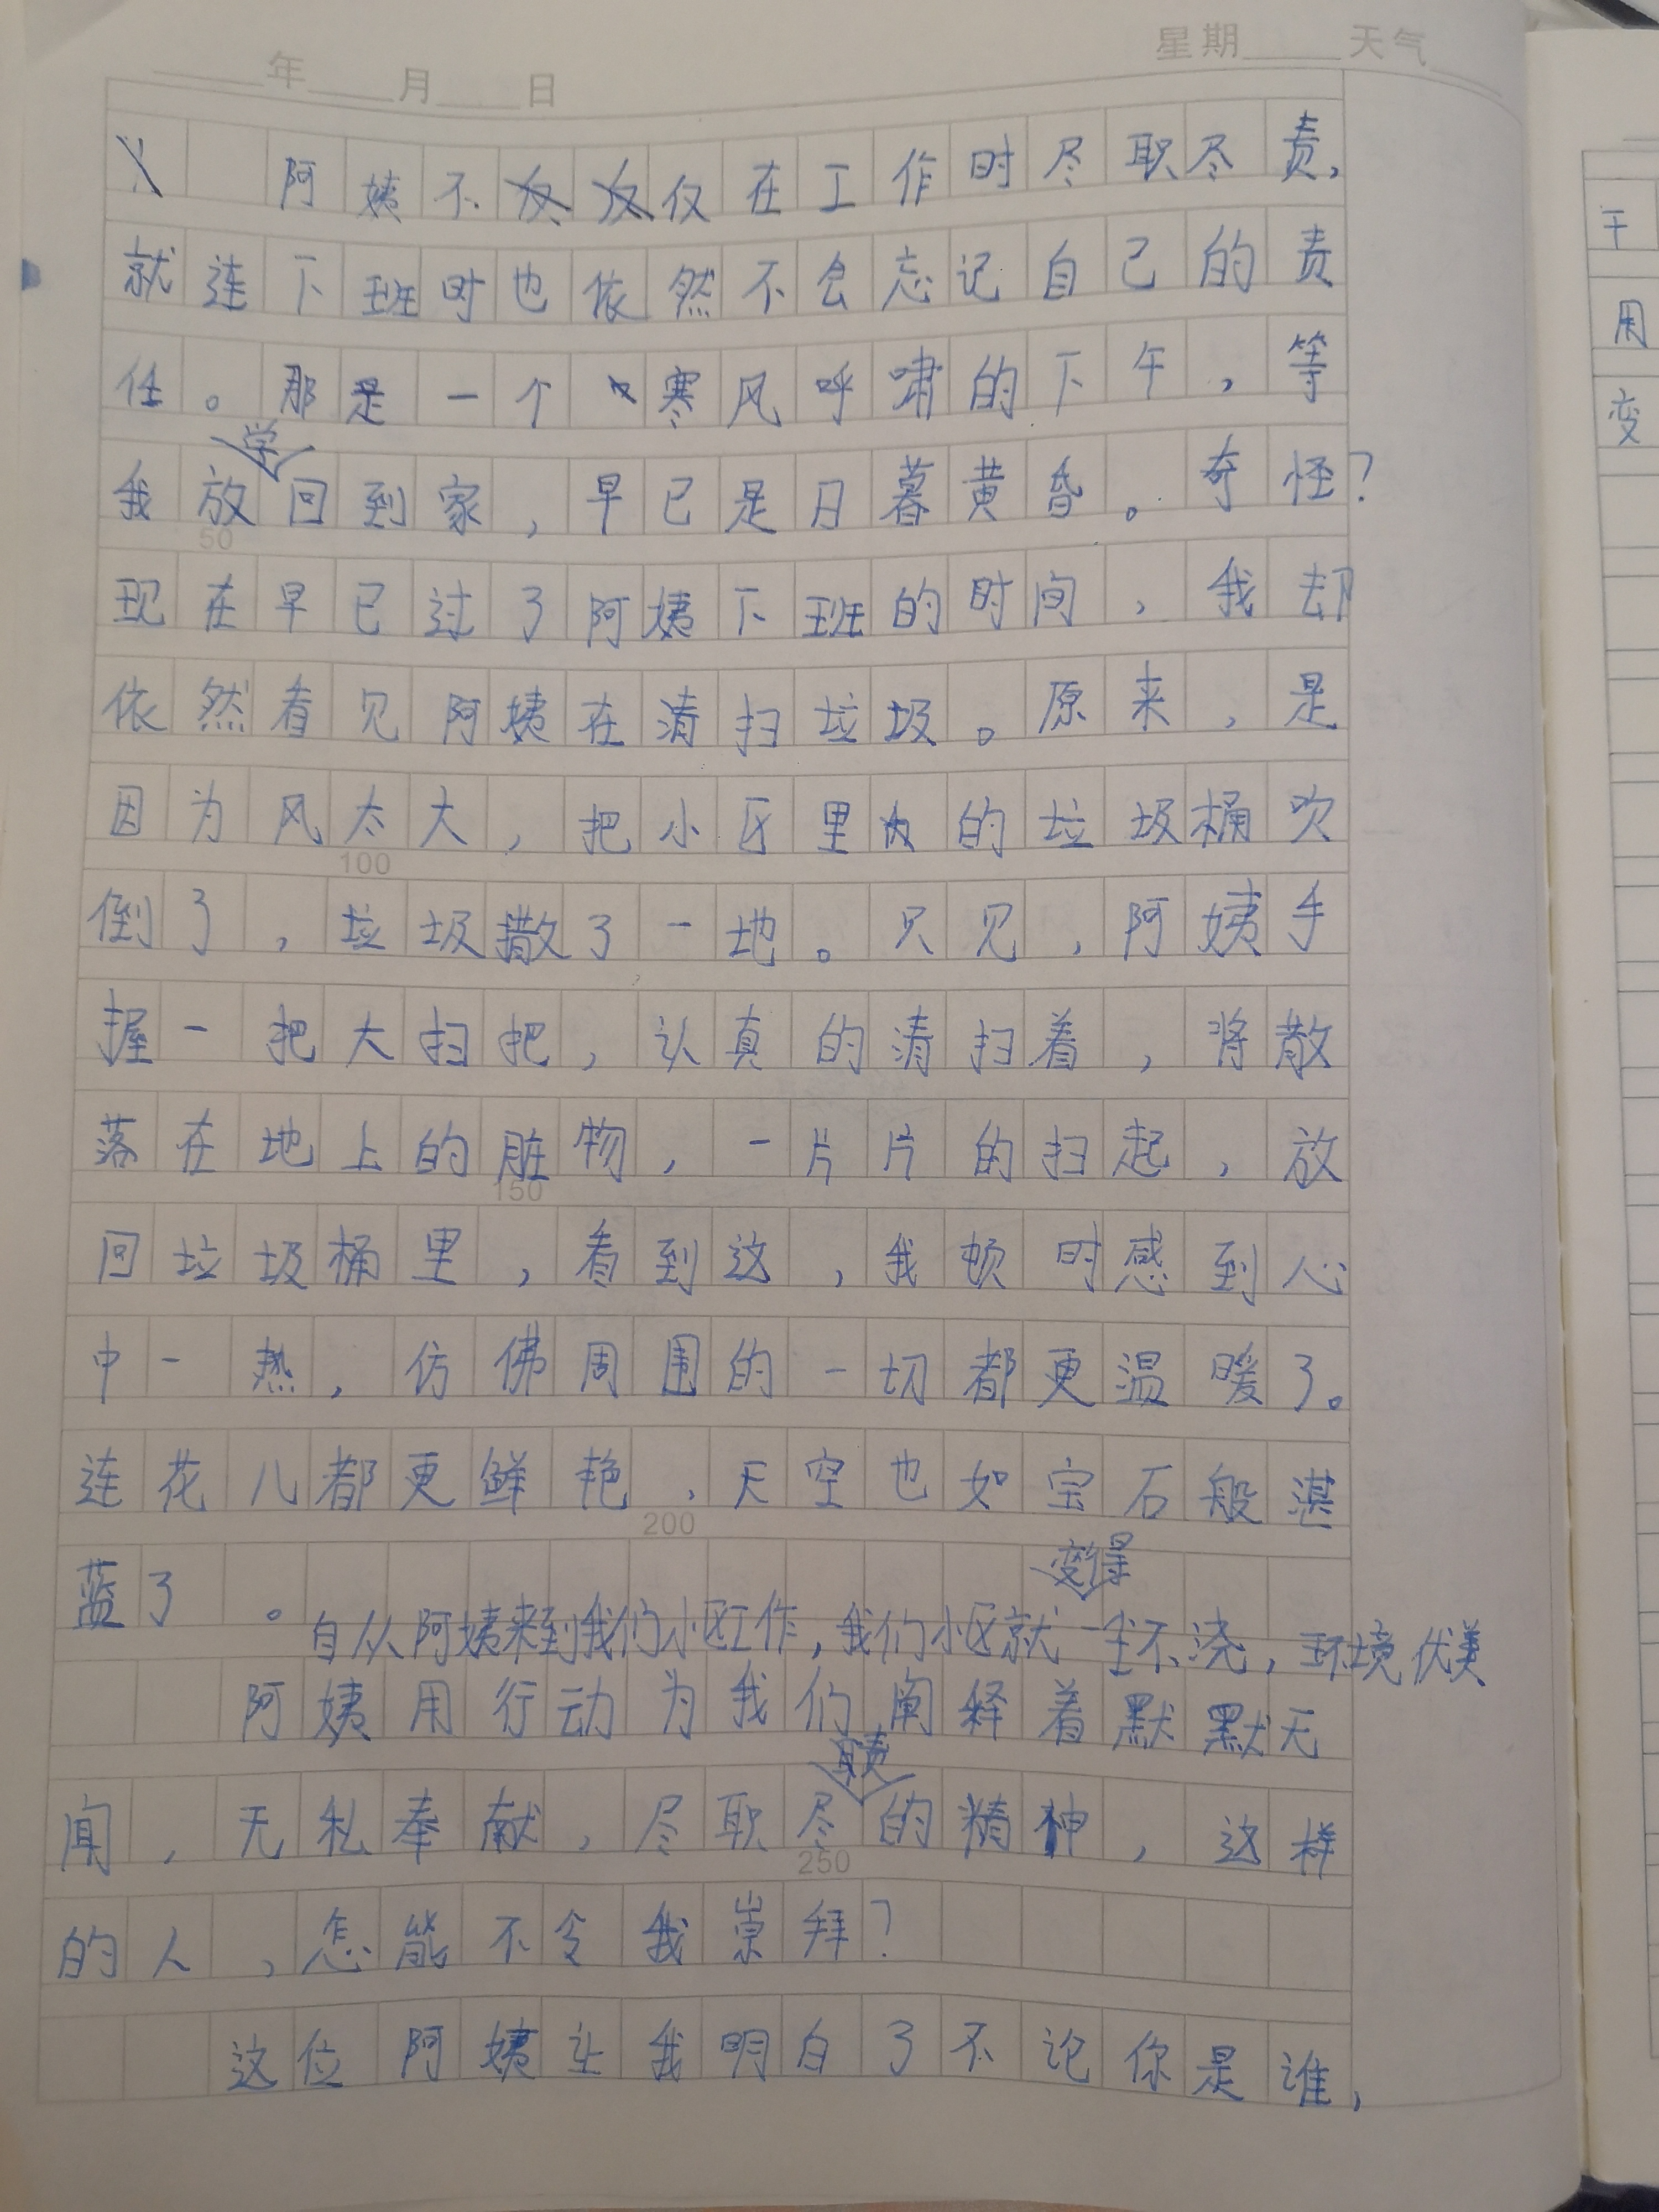 年 月 日 星期 天气
阿姨不仅在工作时尽职尽责，
就连下班时也依然不会忘记自己的责
任。那是一个寒风呼啸的下午，等
我放学回到家，早已是日暮黄昏。奇怪？
50
现在早已过了阿姨下班的时间，我却
依然看见阿姨在清扫垃圾。原来，是
因为风太大，把小区里的垃圾桶吹
100
倒了，垃圾撒了一地。只见，阿姨手
握一把大扫把，认真的清扫着，将散
落在地上的脏物，一片片的扫起，放
150
回垃圾桶里，看到这，我顿时感到心
中一热，仿佛周围的一切都更温暖了。
连花儿都更鲜艳，天空也如宝石般湛
200
蓝了。
自从阿姨来到我们小区工作，我们小区就变得一尘不浇，环境优美
阿姨用行动为我们阐释着默默无
闻，无私奉献，尽职尽责的精神，这样
250
的人，怎能不令我崇拜？
这位阿姨让我明白了不论你是谁，
干
用
变